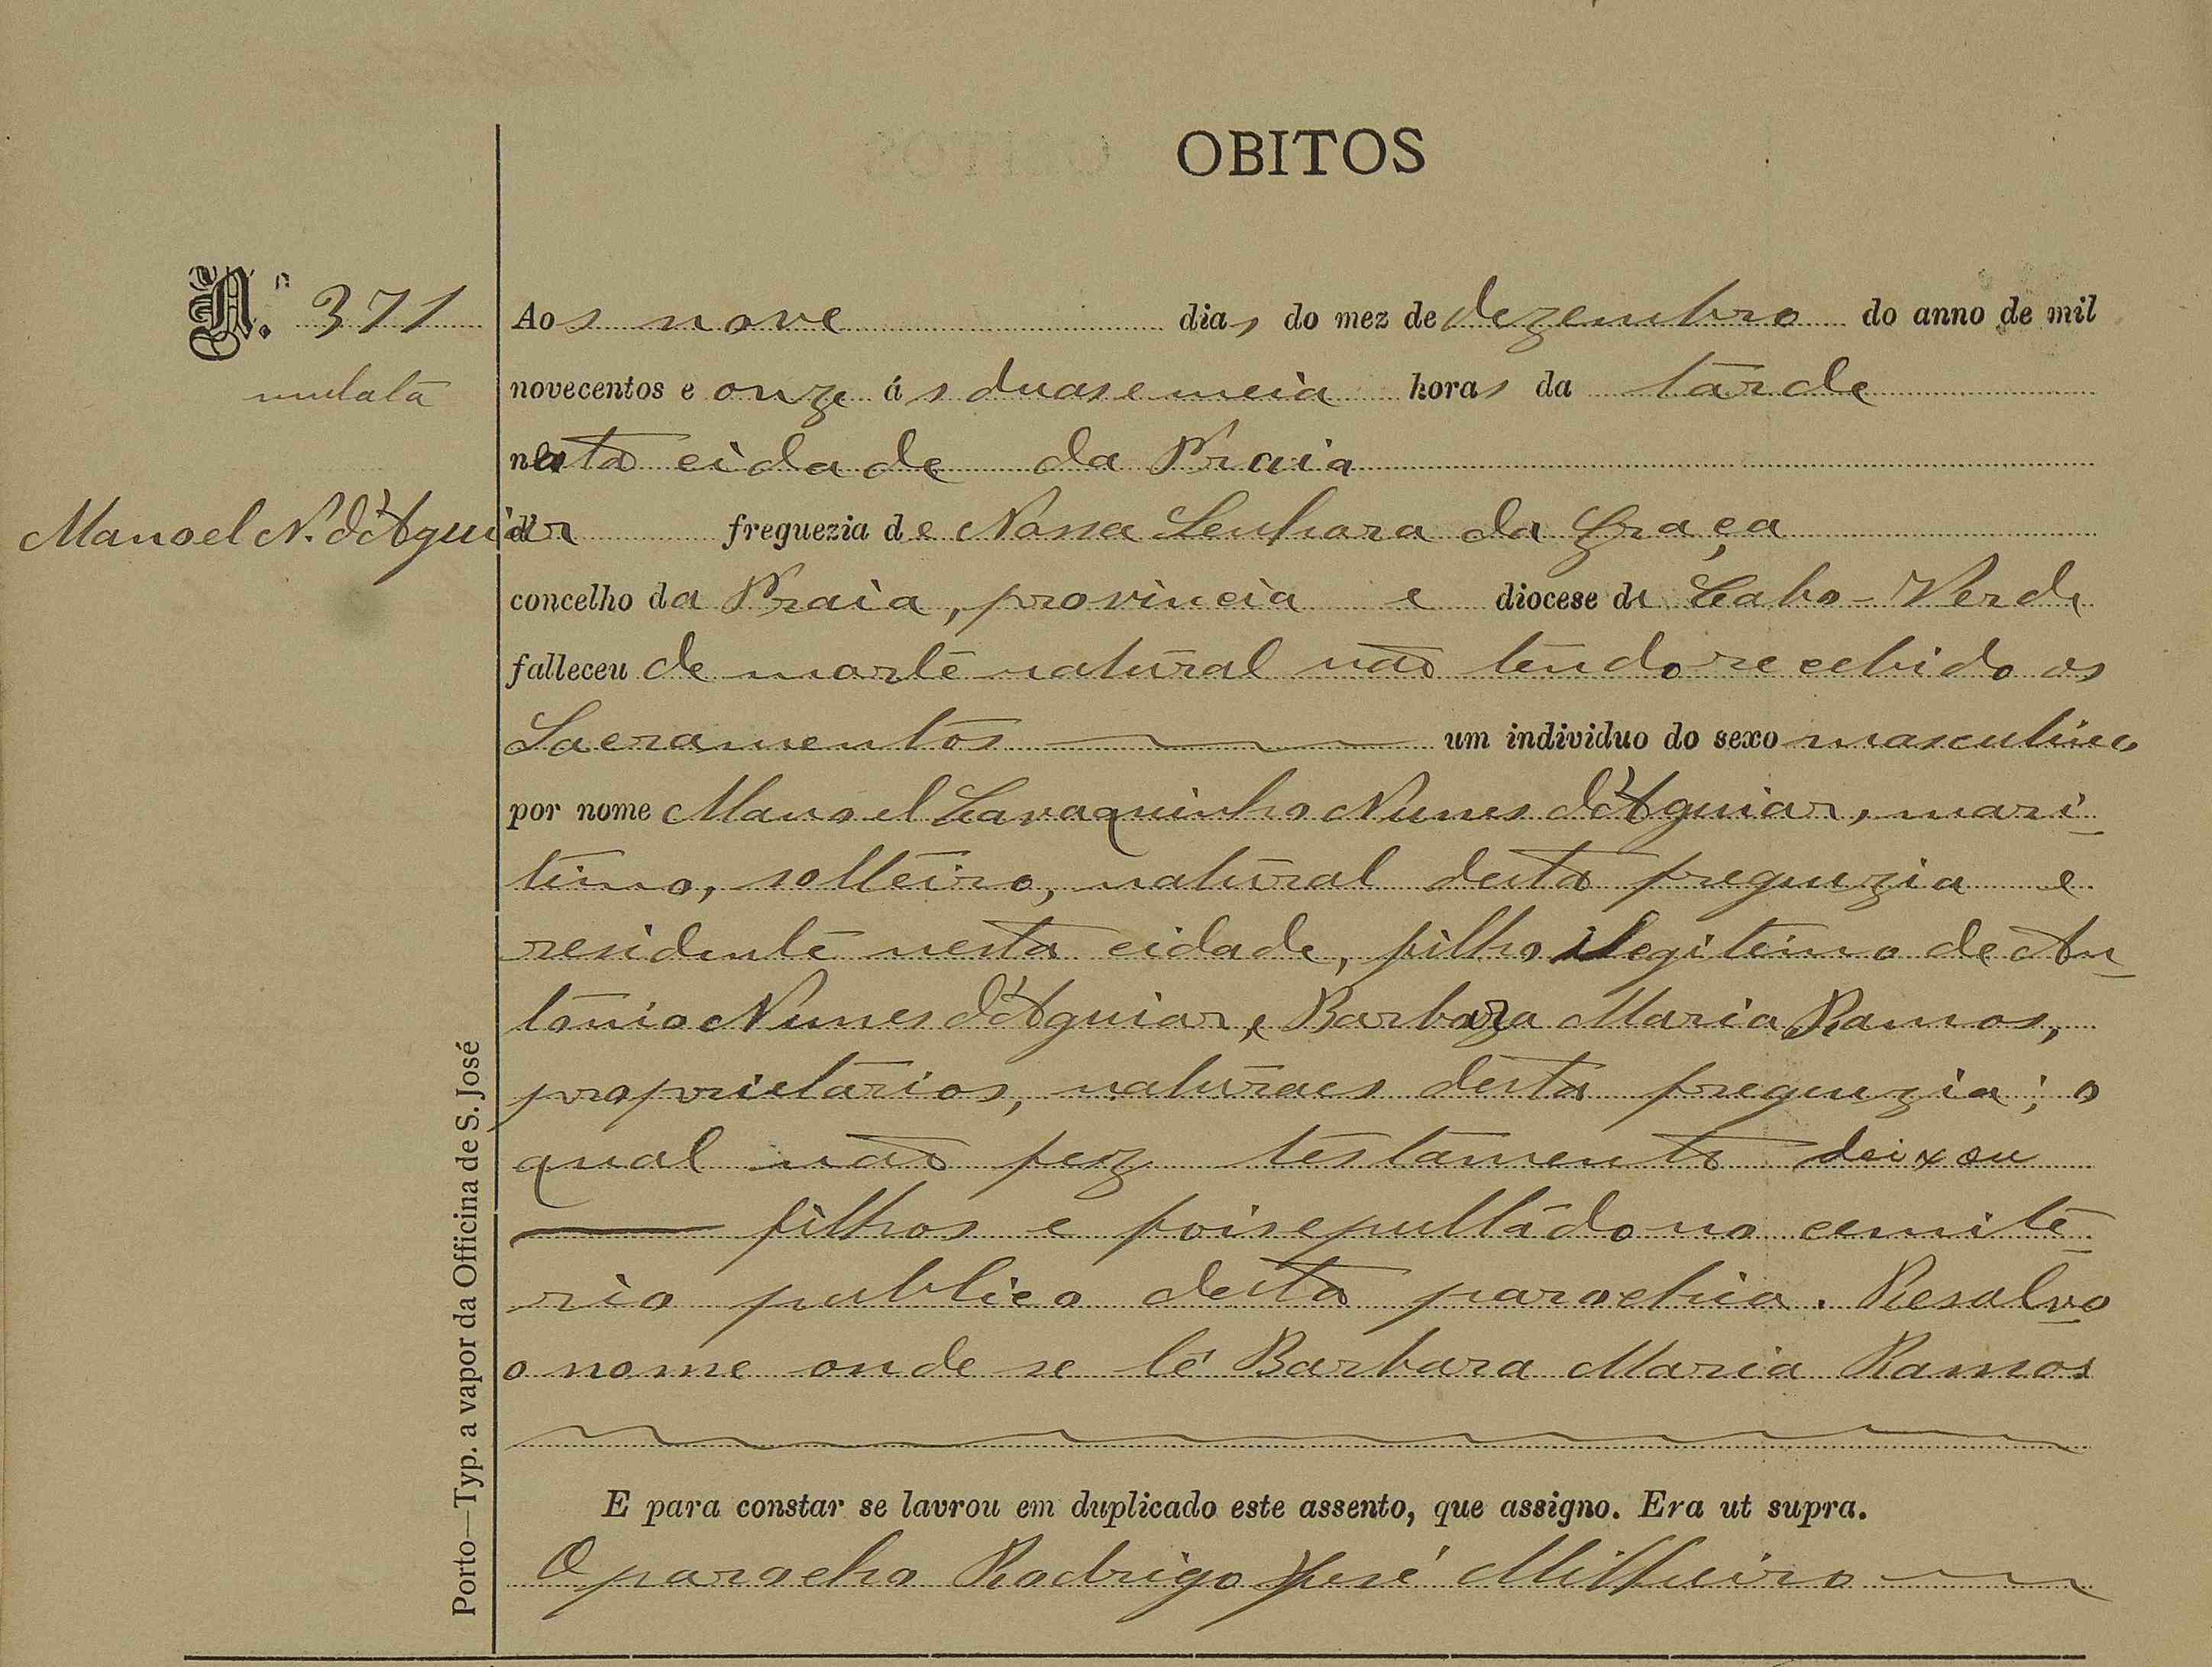 OBITOS
N.º 371
Aos nove dias do mez de dezembro do anno de mil
mulata
novecentos e onze ás duas e meia horas da tarde
nesta cidade da Praia
Manoel N. d'Aguiar
freguezia de Nossa Senhora da Graça
concelho da Praia, provincia e diocese de Cabo-Verde
falleceu de morte natural não tendo recebido os
Sacramentos um individuo do sexo masculino
por nome Manoel Cavaquinho Nunes d'Aguiar, mari-
timo, solteiro, natural desta freguezia e
residente nesta cidade, filho illegitimo de An-
tonio Nunes d'Aguiar, e Barbara Maria Ramos,
proprietarios, naturaes desta freguezia; o
qual não fez testamento deixou
filhos e foi sepultado no cemite-
rio publico desta parochia. Resalvo
o nome onde se lê Barbara Maria Ramos
E para constar se lavrou em duplicado este assento, que assigno. Era ut supra.
O parocho Rodrigo José Milheiro
Porto—Typ. a vapor da Officina de S. José